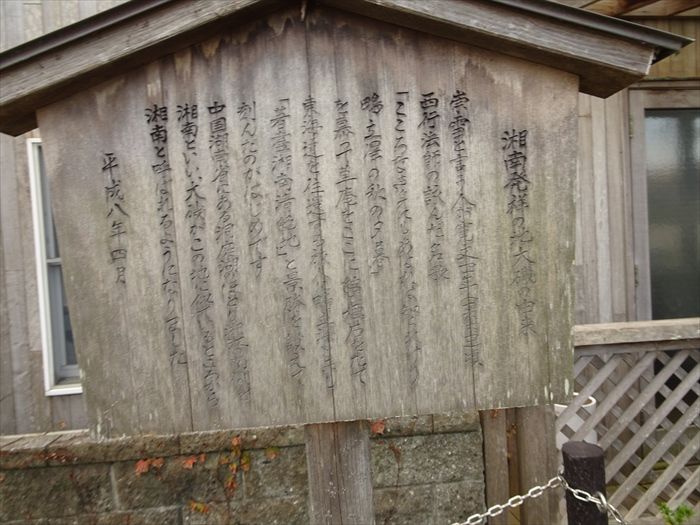 湘南発祥の地大磯の由来
崇雪と言う人が寛文四年
西行法師の詠んだ名歌
「こころなき身にもあはれは知られけり
鴫立澤の秋の夕暮」
を慕って草庵をここに
東海道を往還する旅人に
「著盡湘南清絶地」と景勝を讃えて
刻んだのがはじめです
中国湖南省にある洞庭湖のほとり
湘南といい大磯がこの地に似ているところから
湘南と呼ばれるようになりました
平成八年四月